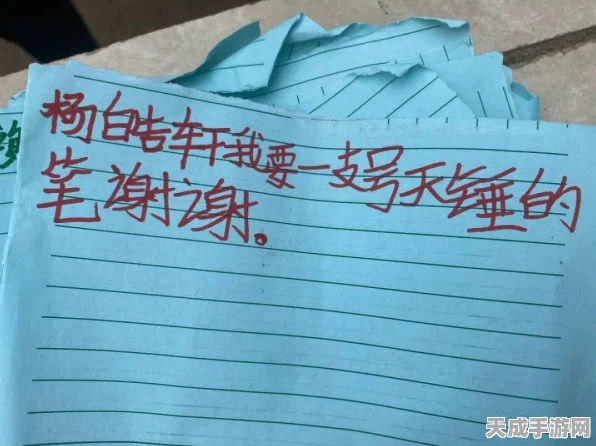 杨皓轩我要一支号天锤的
笔谢谢。
天成手游网